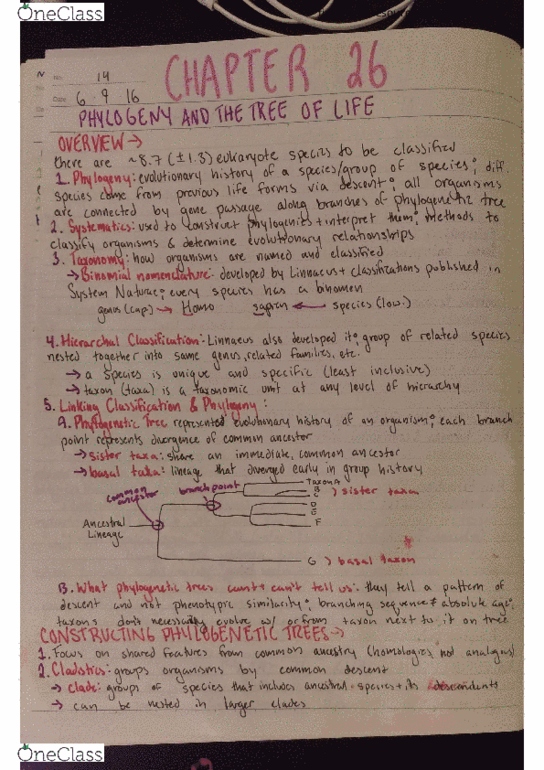 OneClass
No. 14
Date 6 9 16
CHAPTER 26
PHYLOGENY AND THE TREE OF LIFE
OVERVIEW →
there are ~8.7 (±1.3) eukaryote species to be classified
1. Phylogeny: evolutionary history of a species/group of species; diff
species come from previous life forms via descent; all organisms
are connected by gene passage along branches of phylogenetic tree
2. Systematics: used to construct phylogenies + interpret them; methods to
classify organisms & determine evolutionary relationships
3. Taxonomy: how organisms are named and classified
→ Binomial nomenclature: developed by Linnaeus + classifications published in
System Naturae; every species has a binomen
genus (cap) → Homo sapien ← species (low.)
4. Hierarchal Classification: Linnaeus also developed it; group of related species
nested together into same genus, related families, etc.
→ a species is unique and specific (least inclusive)
→ taxon (taxa) is a taxonomic unit at any level of hierarchy
5. Linking Classification & Phylogeny:
A. Phylogenetic Tree represented evolutionary history of an organism; each branch
point represents divergence of common ancestor
→ sister taxa: share an immediate, common ancestor
→ basal taxa: lineage that diverged early in group history
common ancestor
branch point
Taxon A
B
C
) sister taxon
D
E
F
Ancestral
Lineage
G ) basal taxon
B. What phylogenetic trees can + can't tell us: they tell a pattern of
descent and not phenotypic similarity; branching sequence ≠ absolute age;
taxons don't necessarily evolve w/ or from taxon next to it on tree
CONSTRUCTING PHYLOGENETIC TREES →
1. Focus on shared features from common ancestry (homologies, not analogies)
2. Cladistics: groups organisms by common descent
→ clade: groups of species that includes ancestral species + its descendents
→ can be nested in larger clades
OneClass